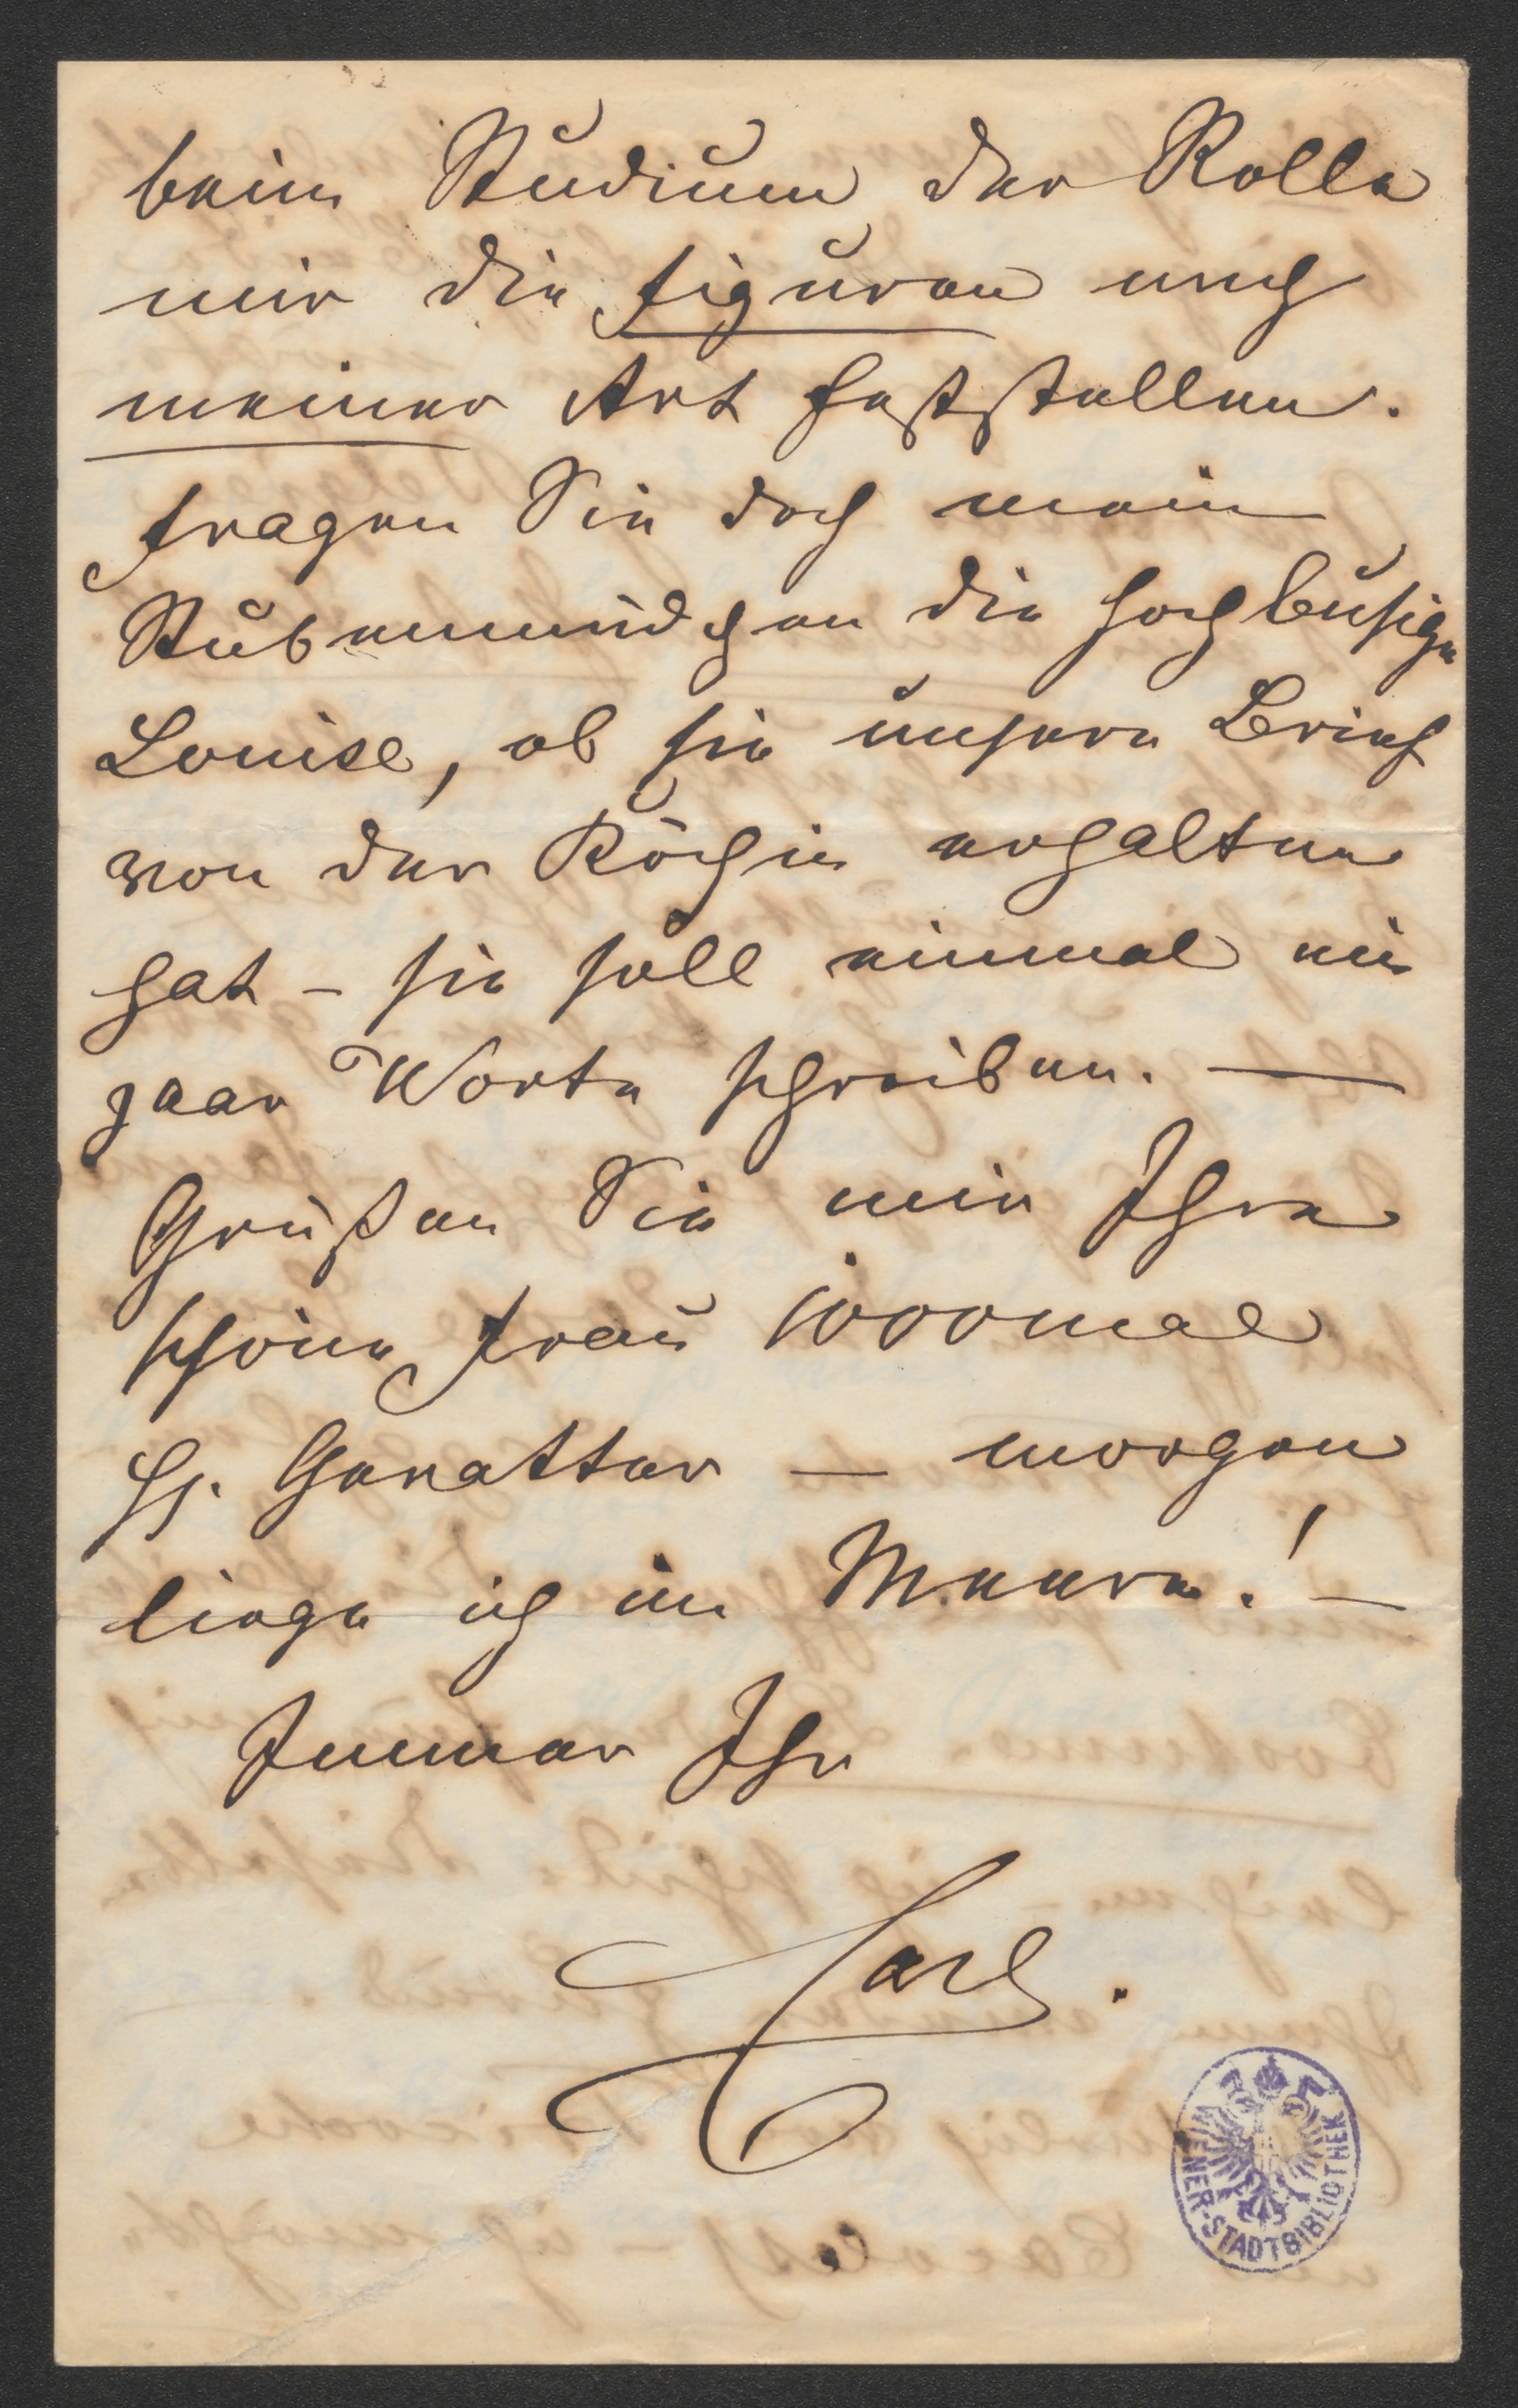 beim Studium der Rolle
mir die Figuren nach
meiner Art feststellen.
Fragen Sie doch mein
Stubenmädchen die hochbusige
Louise, ob sie unsern Brief
von der Köchin erhalten
hat – sie soll einmal ein
paar Worte schreiben. —
Grüßen Sie mir Ihre
schöne Frau 1000mal
H. — morgen
liege ich im Meere! —
Immer Ihr
Carl.
WIENER-STADTBIBLIOTHEK